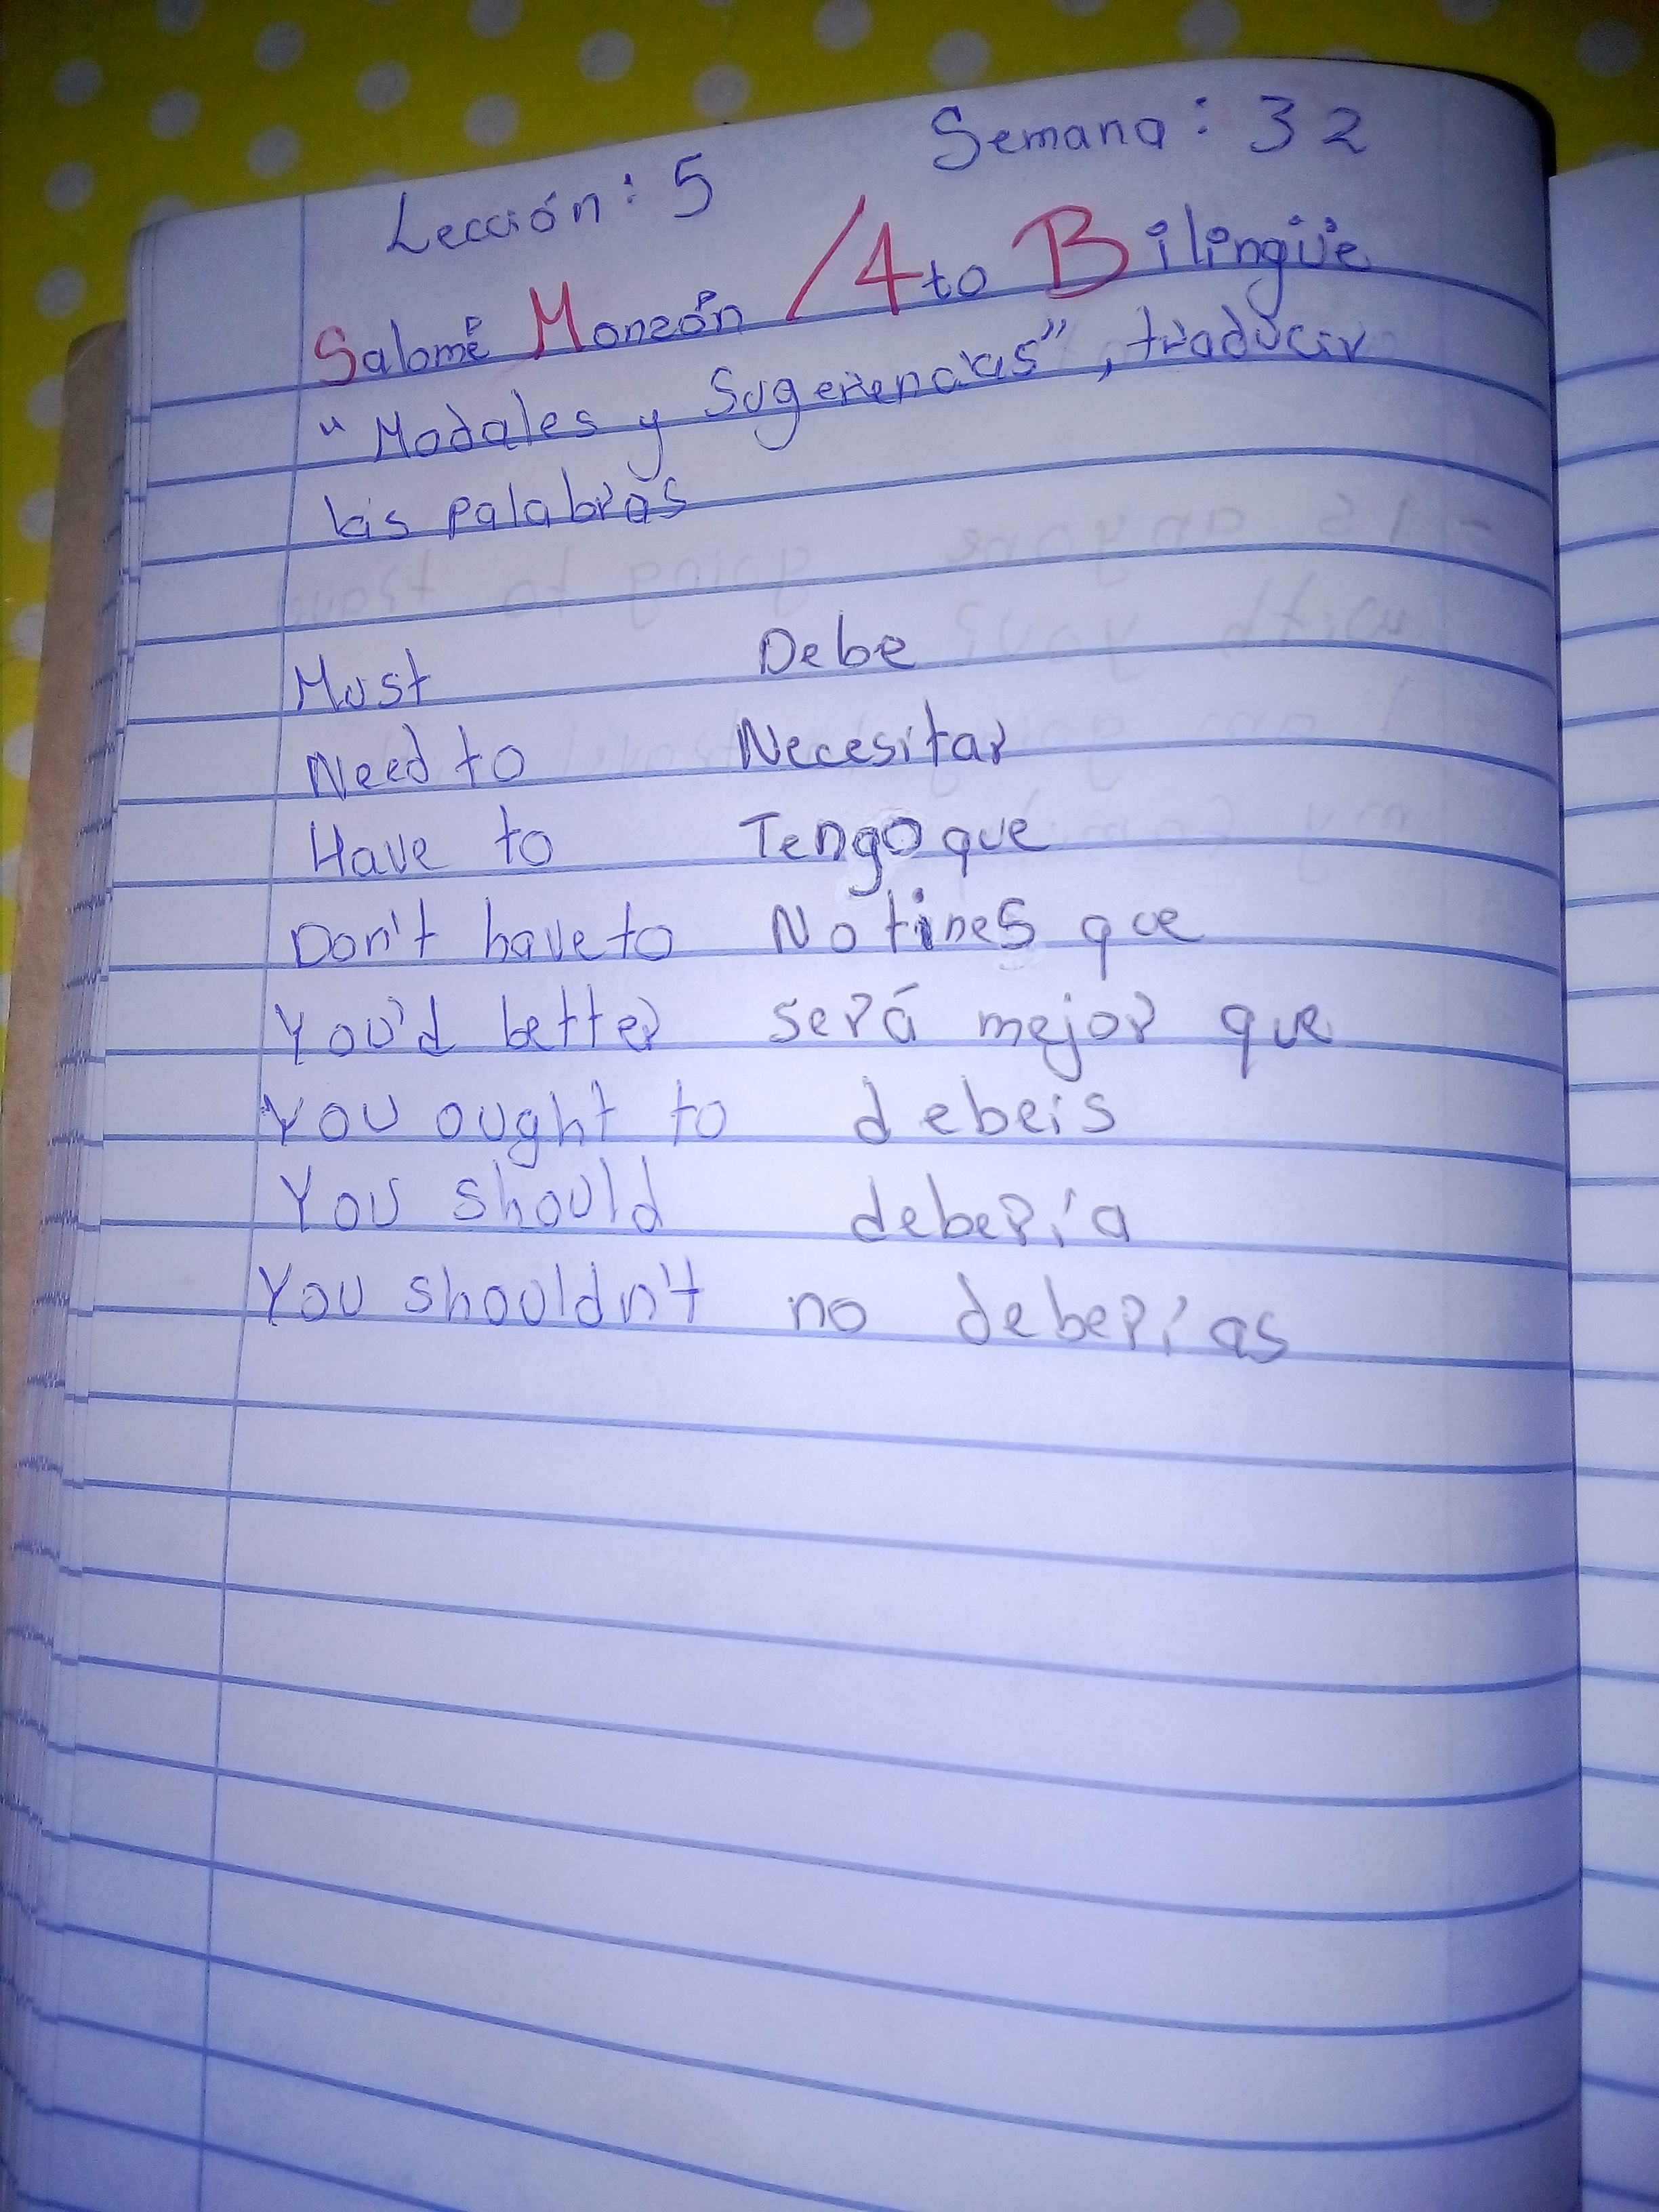 Lección: 5 Semana: 32
Salomé Monzón /4to Bilingüe
"Modales y Sugerencias", traducir
las palabras
Must Debe
Need to Necesitar
Have to Tengo que
Don't have to No tines que
You'd better será mejor que
You ought to debeis
You should debería
You shouldn't no deberías